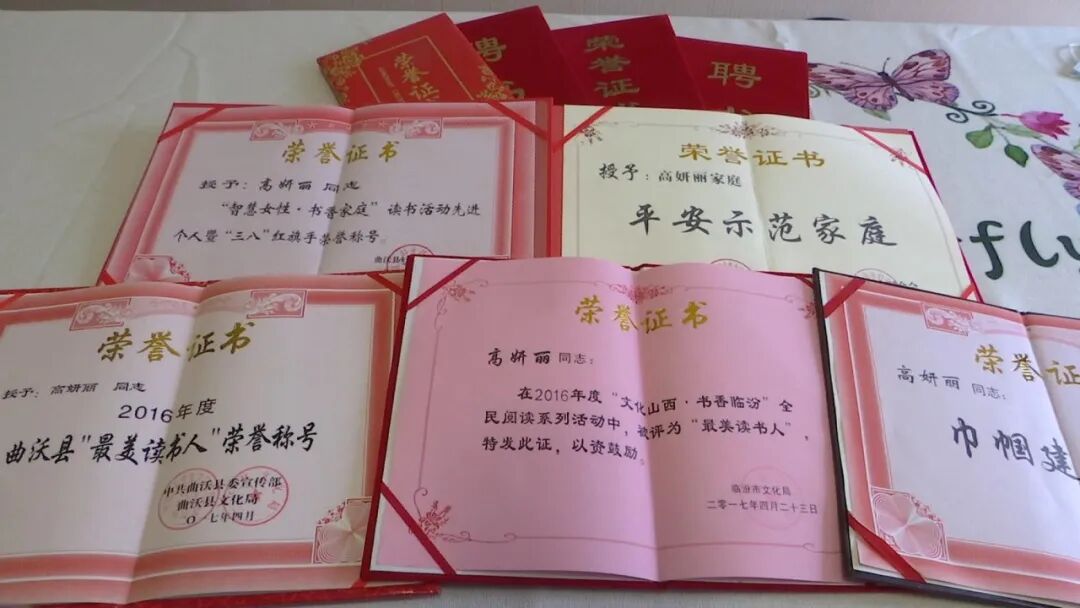 荣誉证
聘
荣誉证
聘
荣誉证书
授予：高妍丽 同志
“智慧女性·书香家庭”读书活动先进
个人暨“三八”红旗手荣誉称号。
曲沃县
荣誉证书
授予：高妍丽家庭
平安示范家庭
fly
荣誉证书
授予：高妍丽 同志
2016年度
曲沃县“最美读书人”荣誉称号
中共曲沃县委宣传部
曲沃县文化局
〇一七年四月
荣誉证书
高妍丽 同志：
在2016年度“文化山西·书香临汾”全
民阅读系列活动中，被评为“最美读书人”，
特发此证，以资鼓励。
临汾市文化局
二零一七年四月二十三日
荣誉证
高妍丽 同志：
巾帼建